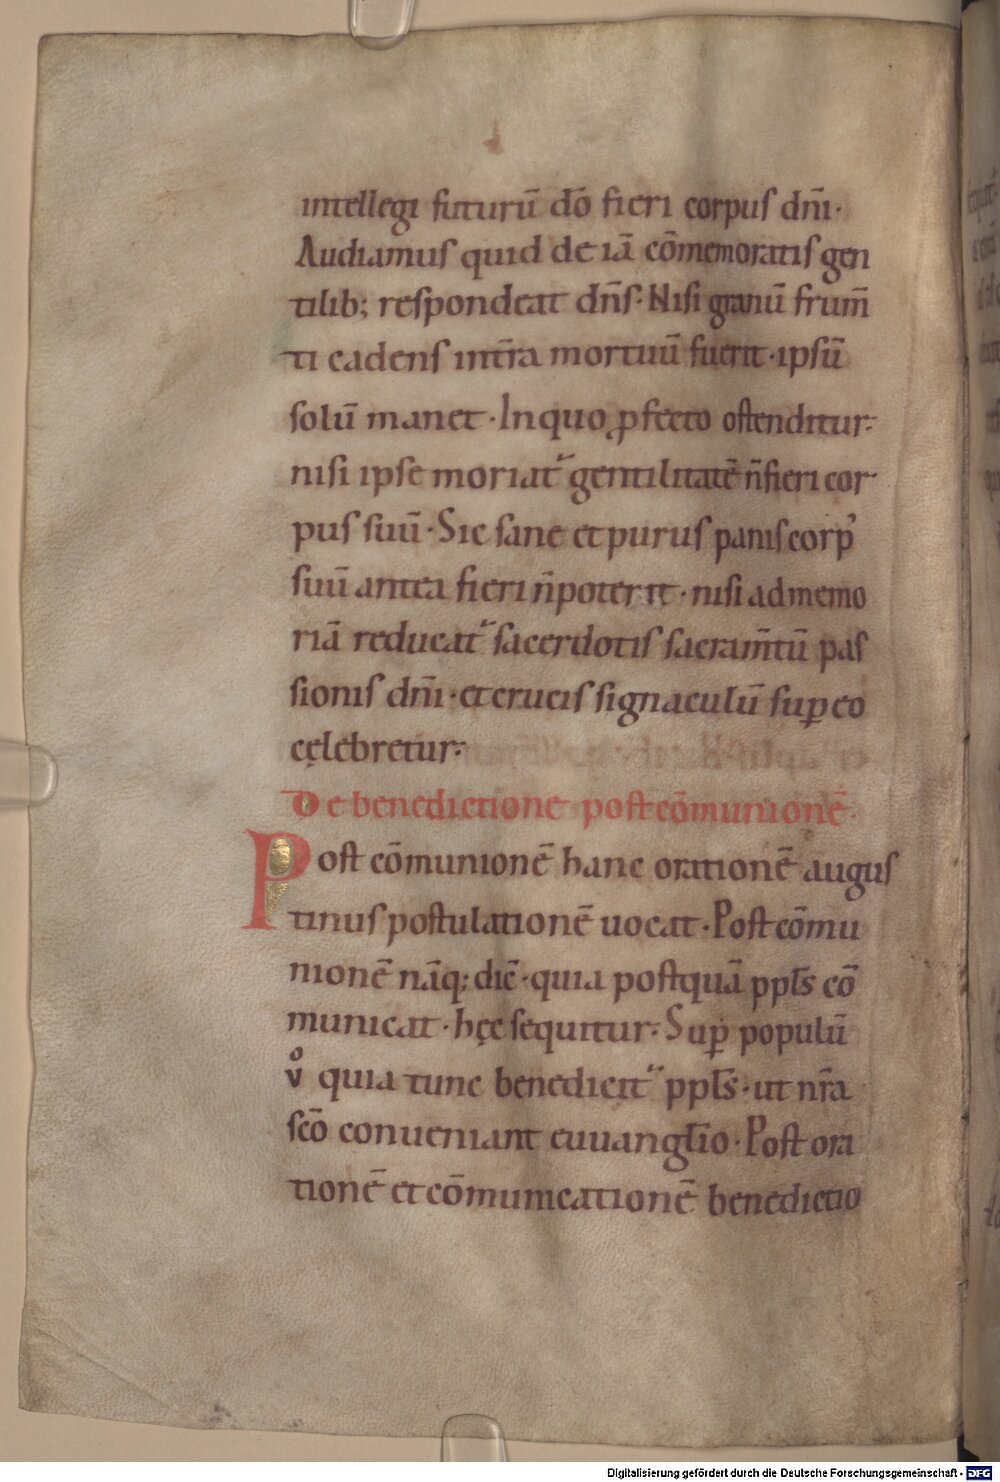 intellegi futurū dō fieri corpus dn̄i·
Audiamus quid de iā cōmemoratis gen
tilib; respondeat dn̄s· Nisi granū frum̄
ti cadens int̄ra mortuū fuerit · ipsū
solū manet · In quo ꝓfecto ostenditur·
nisi ipse moriat᷑ gentilitatē n̄ fieri cor
pus suū · Sic sane et purus panis corpꝰ
suū antea fieri n̄ poterit · nisi ad memo
riā reducat᷑ sacerdotis sacram̄tū pas
sionis dn̄i · et crucis signaculū suꝑ eo
cęlebretur·
De benedictione post cōmunionē·
Post cōmunionē hanc orationē augus
tinus postulationē uocat · Post cōmu
nionē nāq; dic̄ · quia postquā ppl̄s cō
municat · hęc sequitur· Suꝑ populū
vͦ quia tunc benedicit᷑ ppl̄s · ut nr̄a
scō conueniant euuangl̄io · Post ora
tionē et cōmunicationē benedictio
Digitalisierung gefördert durch die Deutsche Forschungsgemeinschaft - DFG